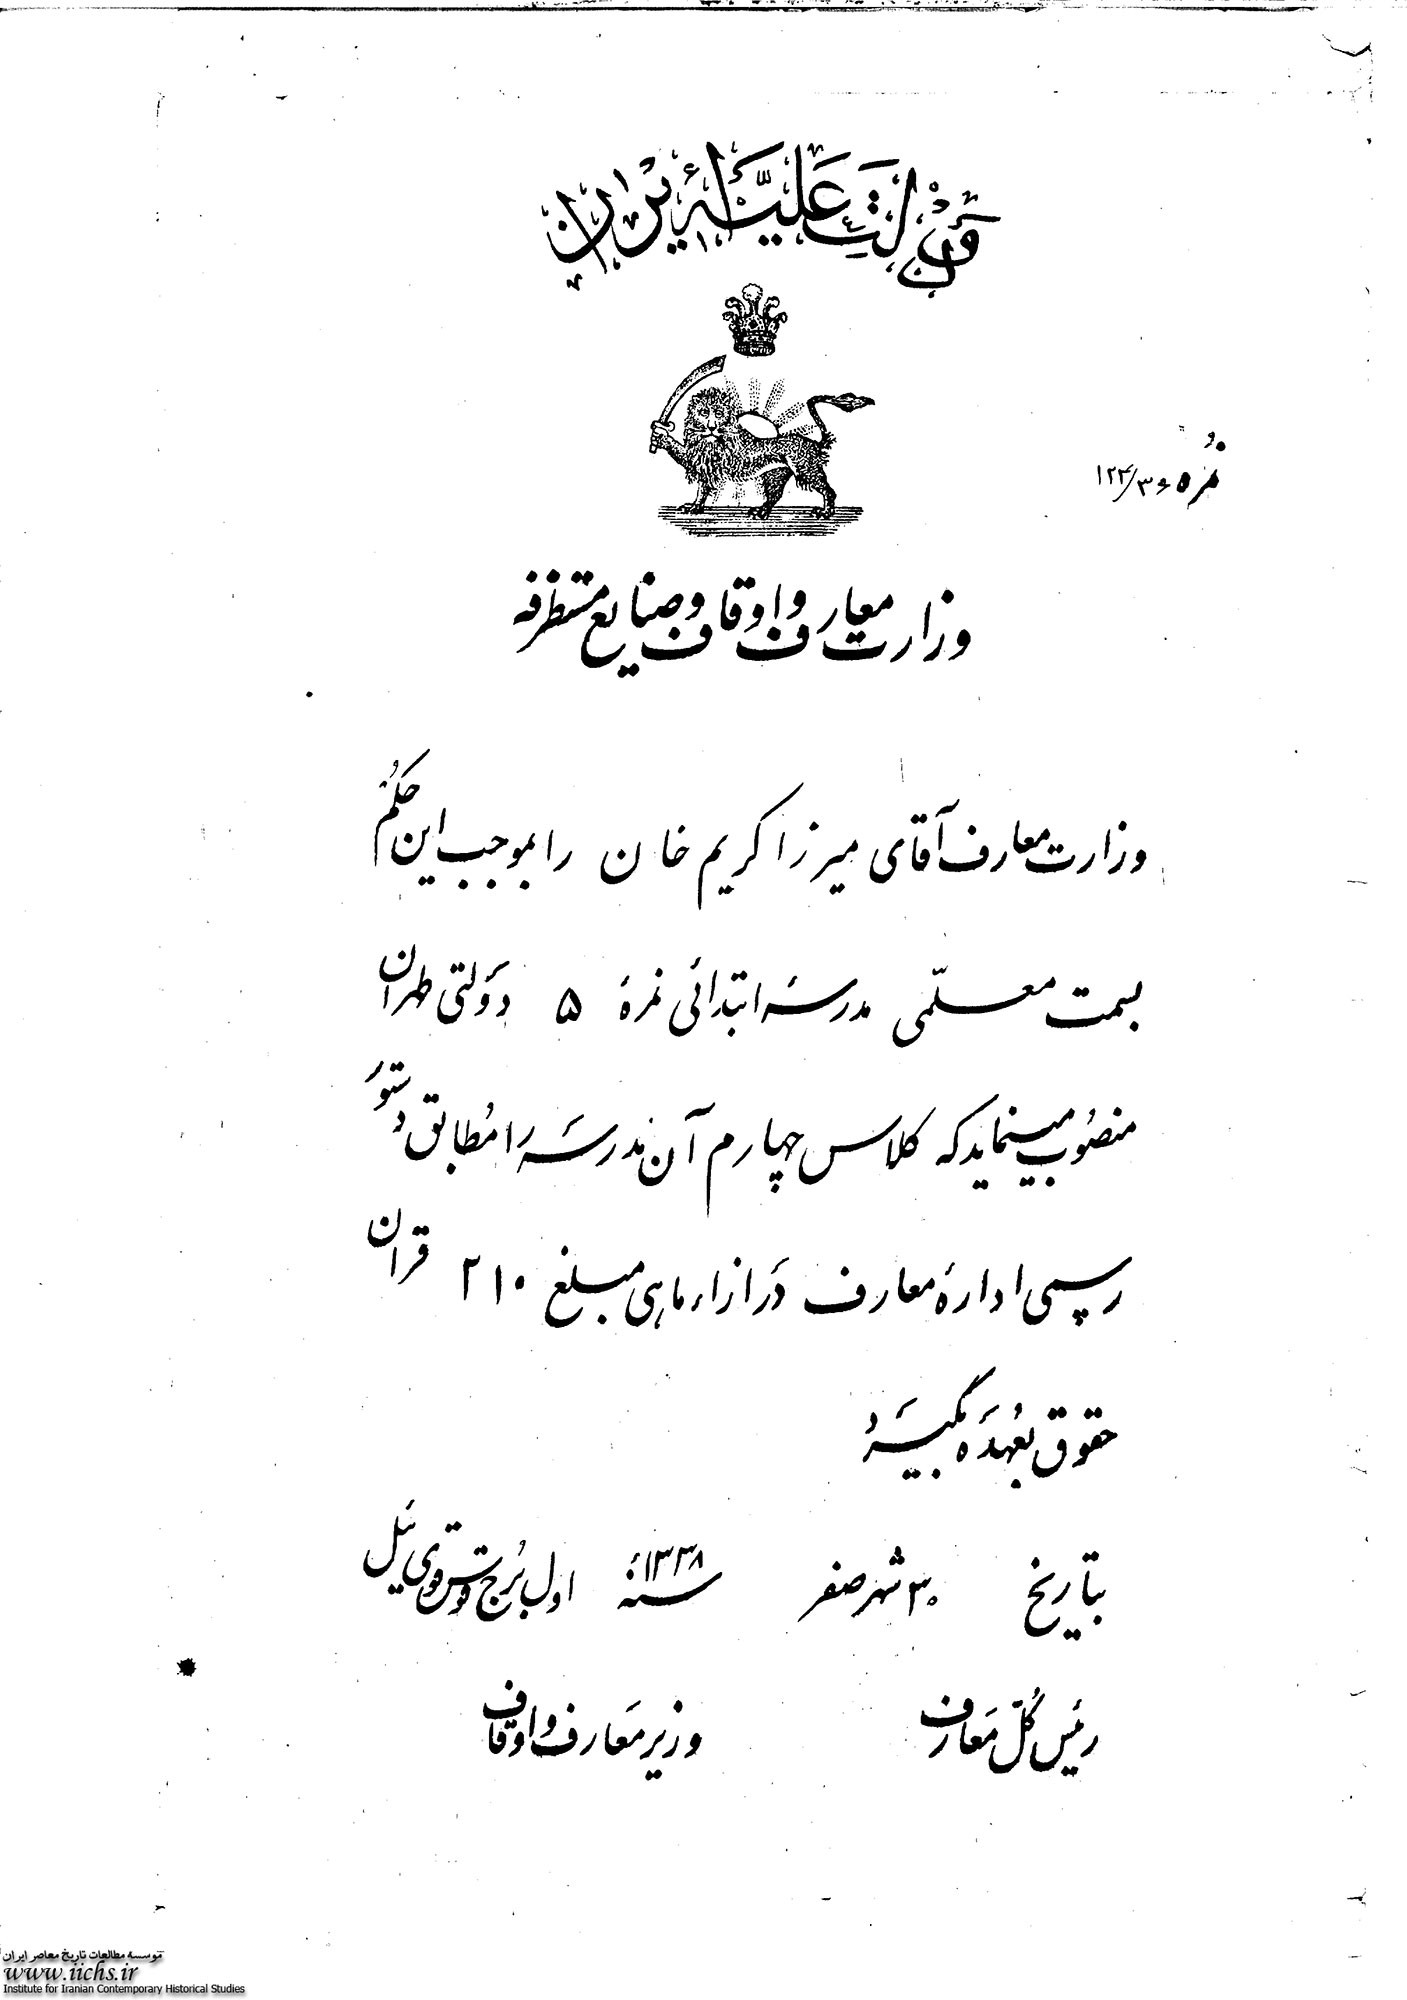 دولت علیّه ایران
نمره ۱۲۴/۳۶
وزارت معارف و اوقاف و صنایع مستظرفه
وزارت معارف آقای میرزا کریم خان را بموجب این حکم
بسمت معلّمی مدرسه ابتدائی نمرهٔ ۵ دولتی طهران
منصوب مینماید که کلاس چهارم آن مدرسه را مطابق دستور
رسمی ادارهٔ معارف در ازاء ماهی مبلغ ۲۱۰ قران
حقوق بعهده بگیرد
بتاریخ ۳۰ شهر صفر سنهٔ ۱۳۳۸ اول برج قوس قوی ئیل
رئیس کلّ معارف
وزیر معارف و اوقاف
موسسه مطالعات تاریخ معاصر ایران
www.iichs.ir
Institute for Iranian Contemporary Historical Studies